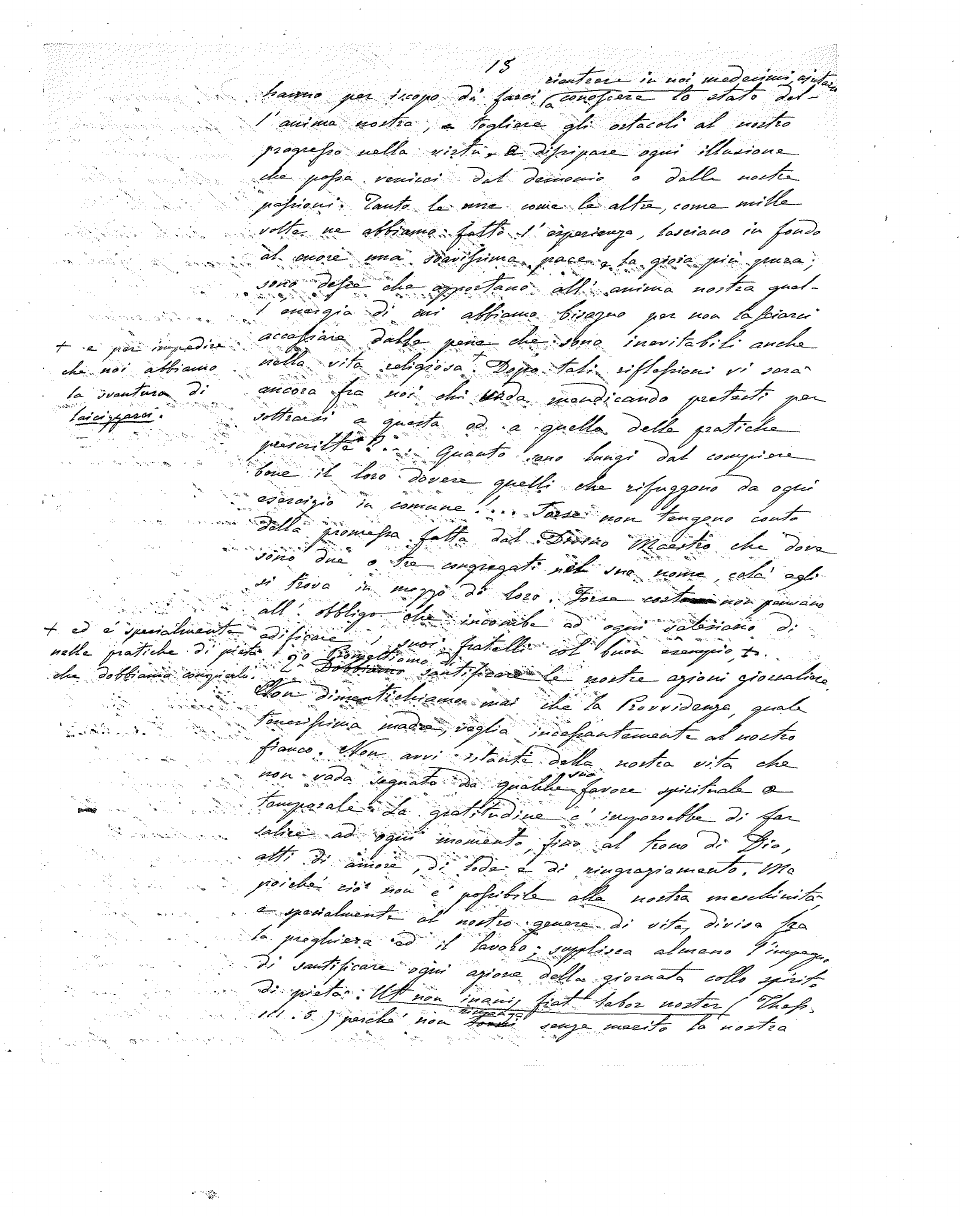 13
rientrare in noi medesimi, ajutarci
hanno per iscopo di farci a conoscere lo stato del-
l'anima nostra, e togliere gli ostacoli al nostro
progresso nella virtù, e dissipare ogni illusione
che possa venirci dal demonio o dalle nostre
passioni. Tanto le une come le altre, come mille
volte ne abbiamo fatto l'esperienza, lasciano in fondo
al cuore una soavissima pace e la gioia più pura;
sono desse che apportano all'anima nostra quel-
l'energia di cui abbiamo bisogno per non lasciarci
accasciare dalle pene che sono inevitabili anche
nella vita religiosa +. Dopo tali riflessioni vi sarà
+ e per impedire
che noi abbiamo
la sventura di
laicizzarci.
ancora fra noi chi vada mendicando pretesti per
sottrarsi a questa od a quella delle pratiche
prescritte?... Quanto sono lungi dal compiere
bene il loro dovere quelli che rifuggono da ogni
esercizio in comune!... Forse non tengono conto
della promessa fatta dal Divino Maestro che dove
sono due o tre congregati nel suo nome, colà egli
si trova in mezzo di loro. Forse costoro non pensano
all'obbligo che incombe ad ogni salesiano di
edificare i suoi fratelli col buon esempio, +.
+ ed è specialmente
nelle pratiche di pietà
che dobbiamo
2º Promettiamo di
Dobbiamo santificare le nostre azioni giornaliere.
Non dimentichiamo mai che la Provvidenza, quale
tenerissima madre, veglia incessantemente al nostro
fianco. Non avvi istante della nostra vita che
non vada segnato da qualche suo favore spirituale o
temporale. La gratitudine c'imporrebbe di far
salire ad ogni momento, fino al trono di Dio,
atti di amore, di lode e di ringraziamento. Ma
poiché ciò non è possibile alla nostra meschinità,
e specialmente al nostro genere di vita, divisa fra
la preghiera ed il lavoro; supplisca almeno l'impegno
di santificare ogni azione della giornata collo spirito
di pietà. Ut non inanis fiat labor noster (Thess.
III. 5.) perché non rimanga senza merito la nostra